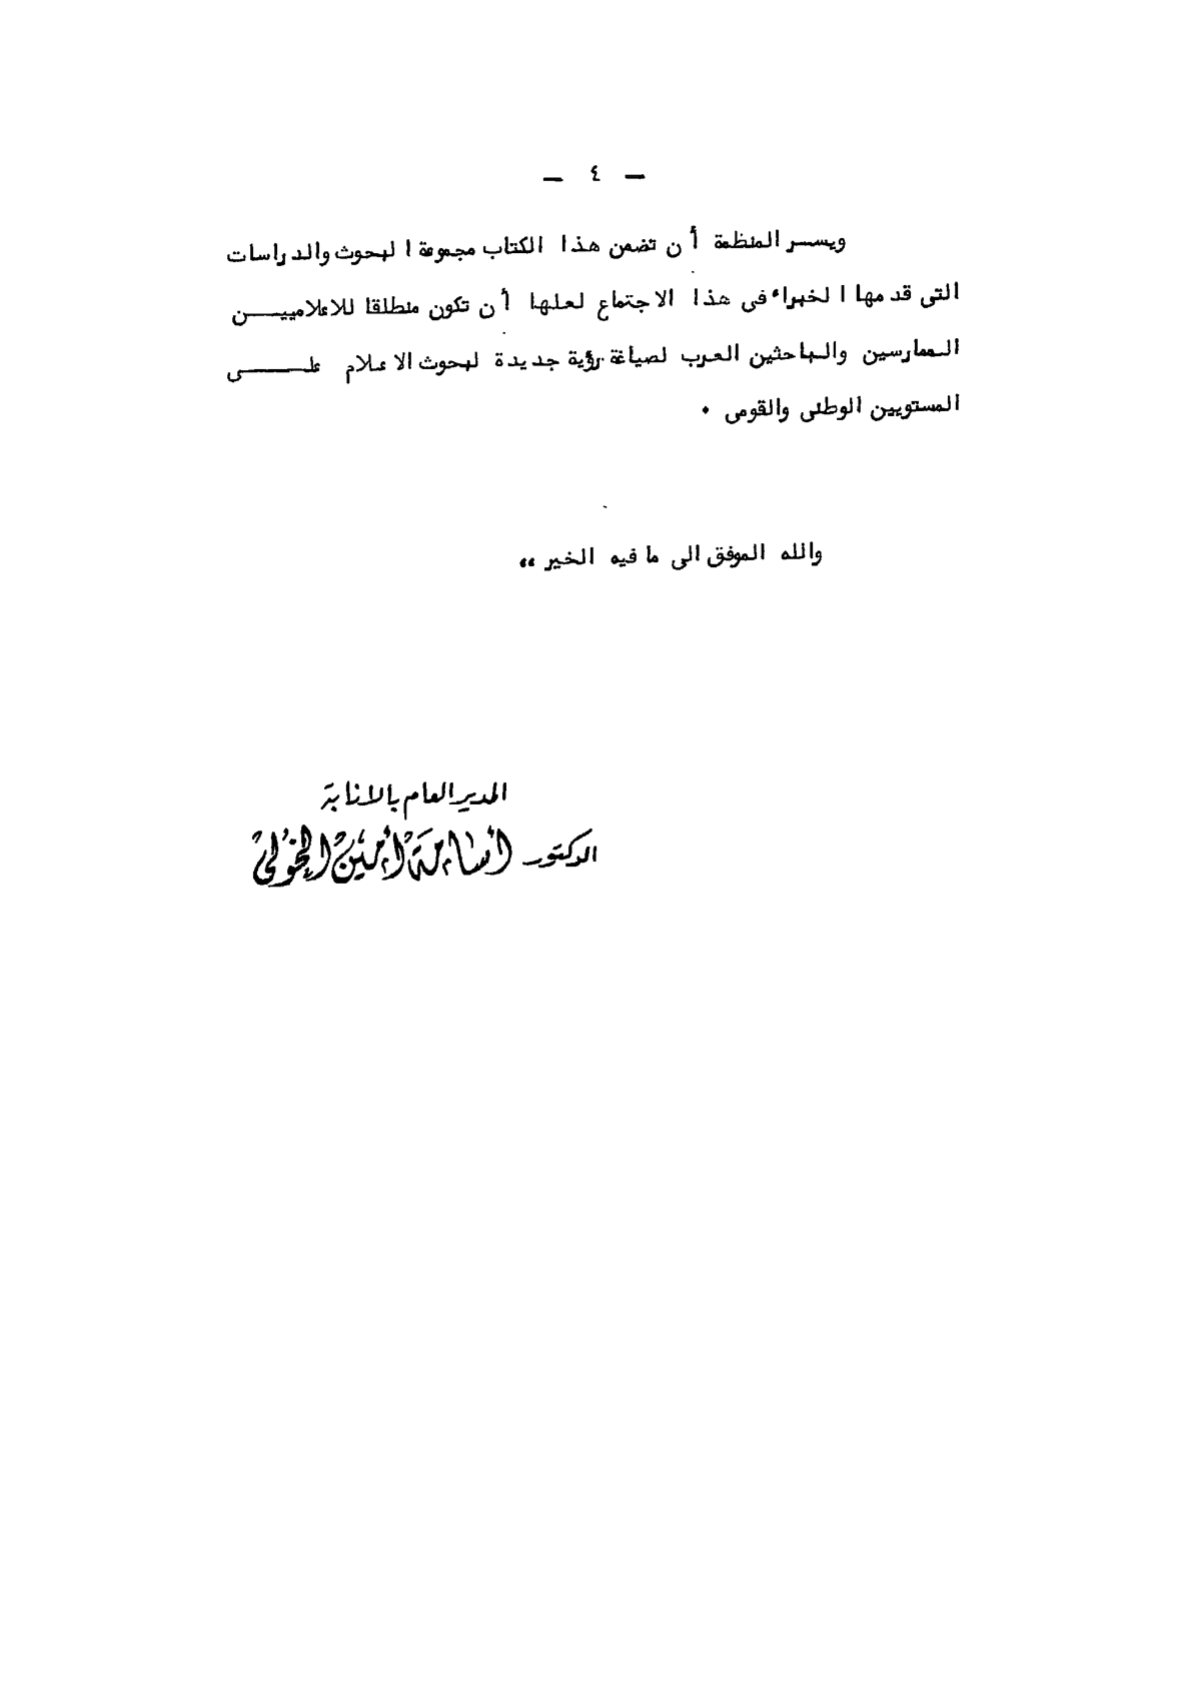 — ٤ —
ويسر المنظمة أن تضمن هذا الكتاب مجموعة البحوث والدراسات
التى قدمها الخبراء فى هذا الاجتماع لعلها أن تكون منطلقا للاعلامييـــن
الممارسين والباحثين العرب لصياغة رؤية جديدة لبحوث الاعلام علـــــى
المستويين الوطنى والقومى ٠
والله الموفق الى ما فيه الخير ،،
المدير العام بالانابة
الدكتور أسامة أمين الخولى